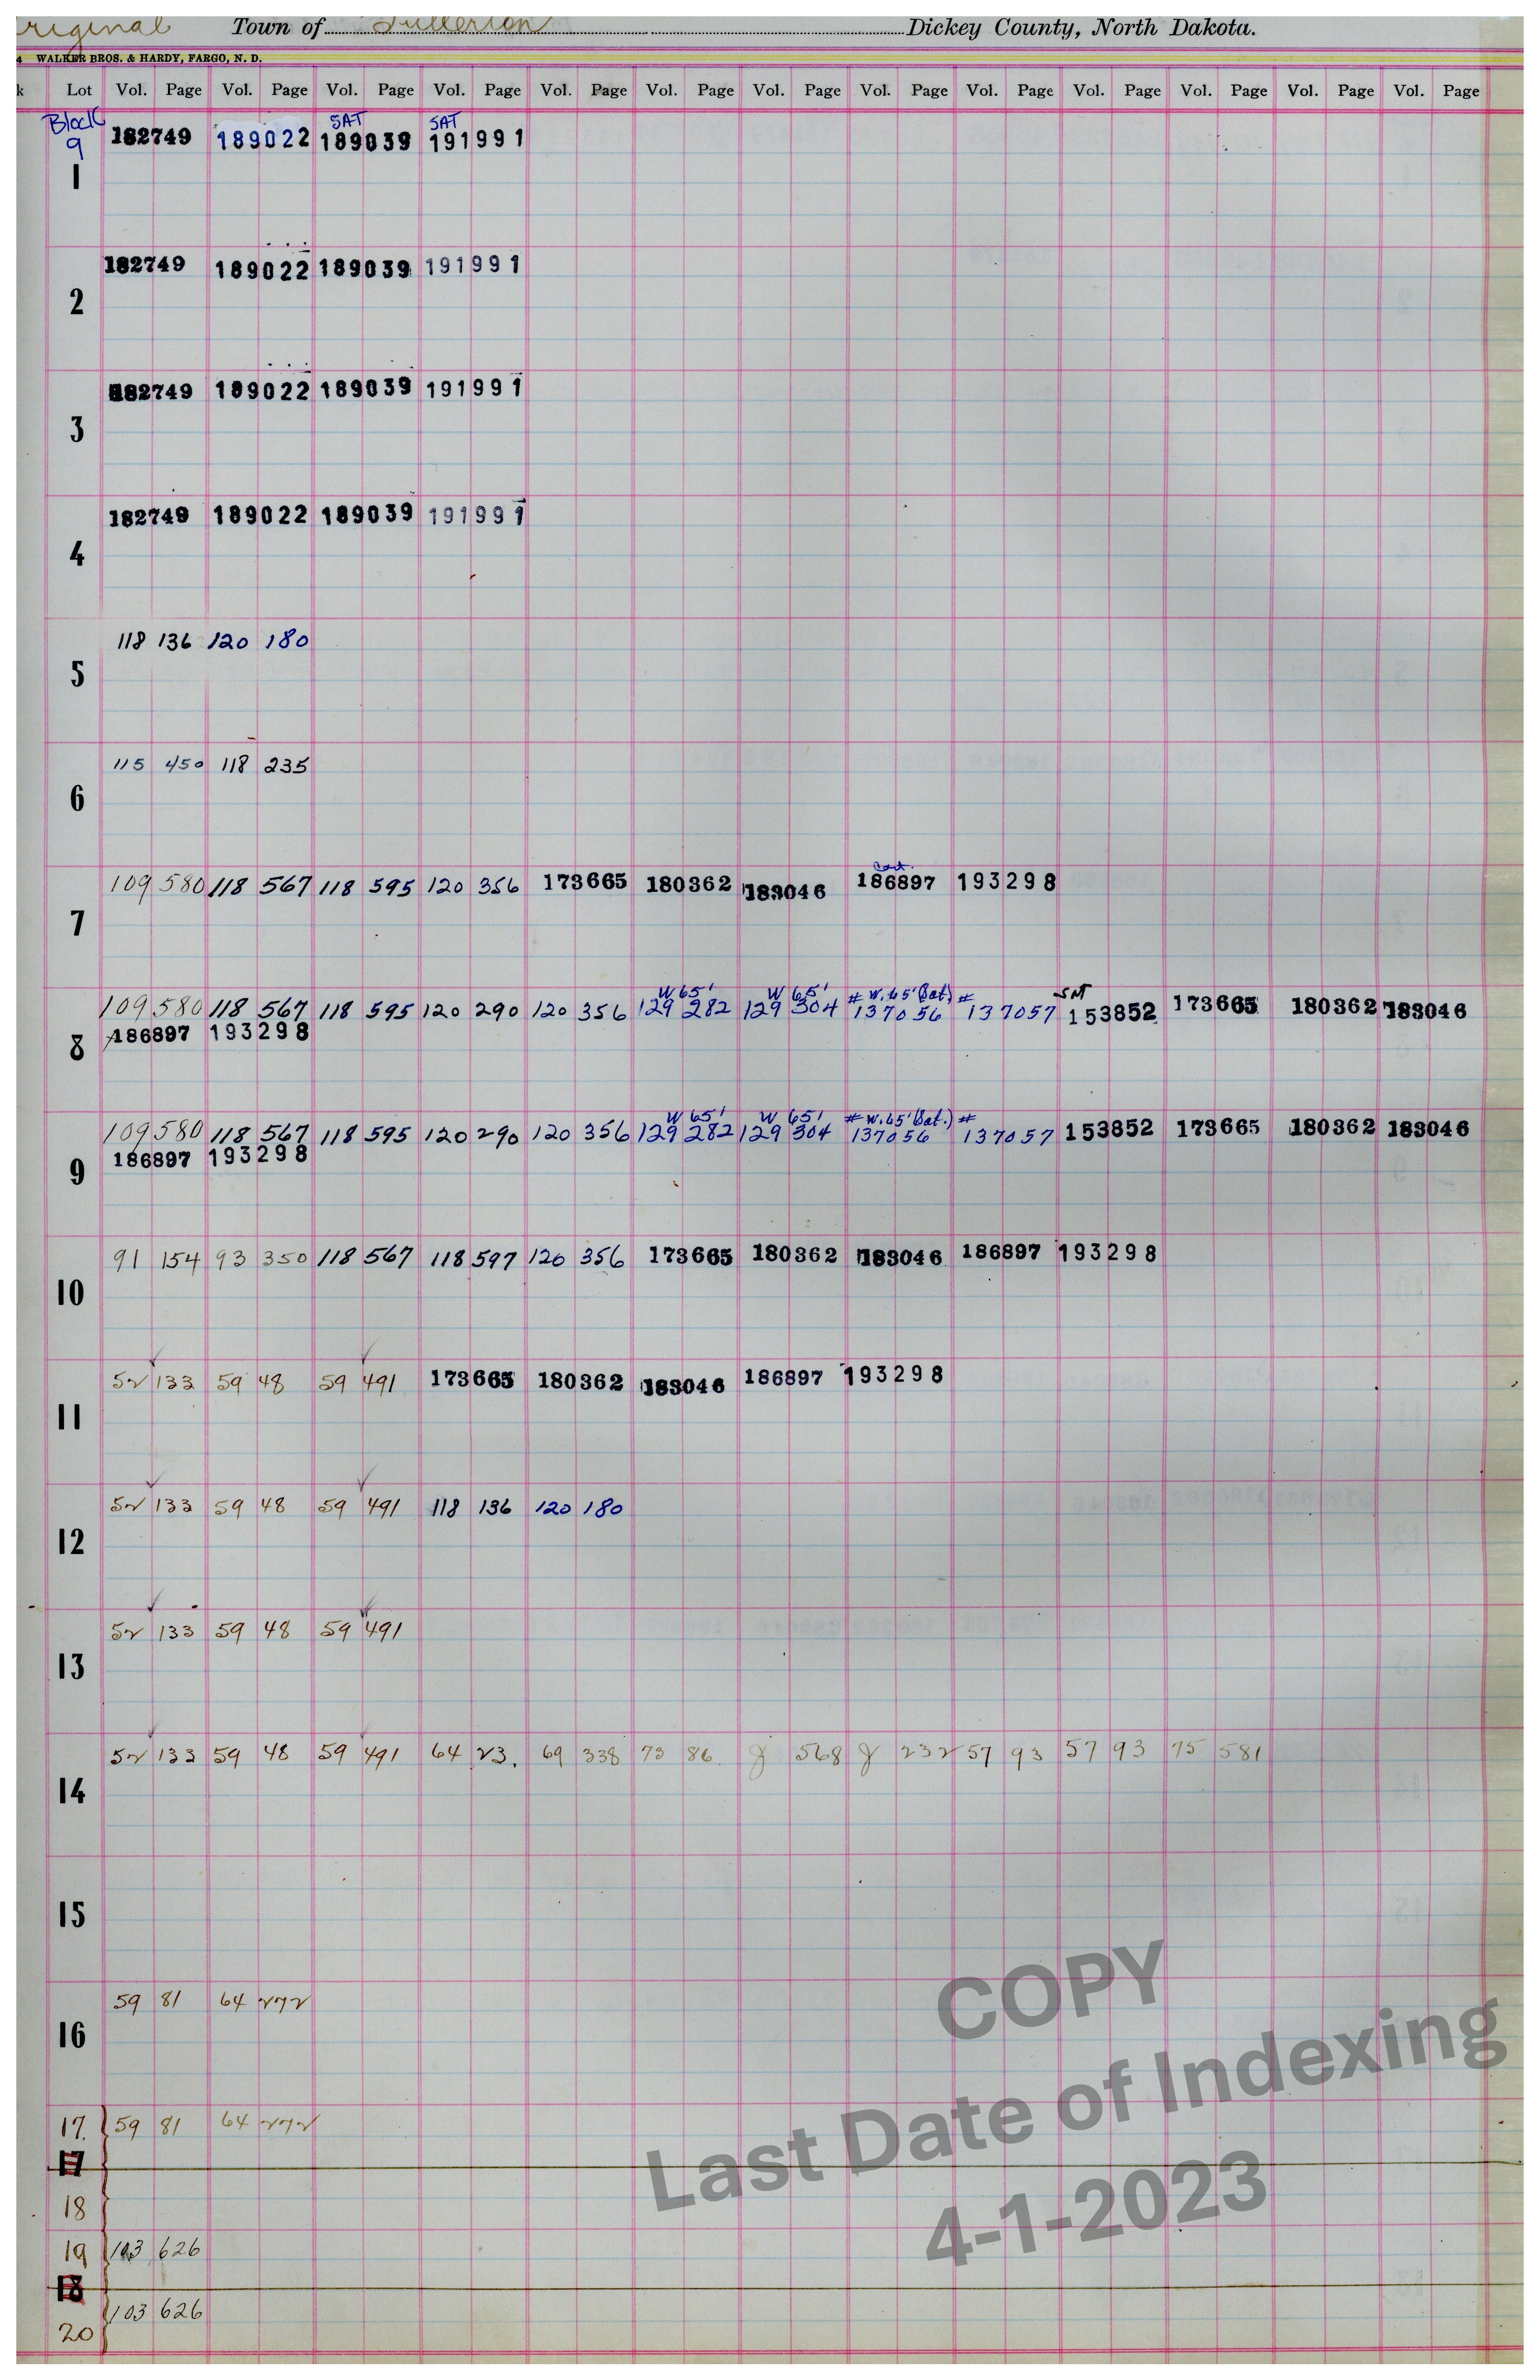 riginal Town of Fullerton Dickey County, North Dakota.
4 WALKER BROS. & HARDY, FARGO, N. D.
k Lot Vol. Page Vol. Page Vol. Page Vol. Page Vol. Page Vol. Page Vol. Page Vol. Page Vol. Page Vol. Page Vol. Page Vol. Page Vol. Page
Block SAT SAT
9 182749 189022 189039 191991
1
182749 189022 189039 191991
2
182749 189022 189039 191991
3
182749 189022 189039 191991
4
118 136 120 180
5
115 450 118 235
6
109 580 118 567 118 595 120 356 173665 180362 183046 186897 193298
7
W 65' W 65' # W. 65' (Sat.) # SAT
109 580 118 567 118 595 120 290 120 356 129 282 129 304 137056 137057 153852 173665 180362 183046
186897 193298
8
W 65' W 65' # W. 65' (Sat.) #
109 580 118 567 118 595 120 290 120 356 129 282 129 304 137056 137057 153852 173665 180362 183046
186897 193298
9
91 154 93 350 118 567 118 597 120 356 173665 180362 183046 186897 193298
10
52 133 59 48 59 491 173665 180362 183046 186897 193298
11
52 133 59 48 59 491 118 136 120 180
12
52 133 59 48 59 491
13
52 133 59 48 59 491 64 23. 69 338 73 86 8 568 8 232 57 93 57 93 75 581
14
15
59 81 64 272
16
17. 59 81 64 272
17
18
19 103 626
18
103 626
20
COPY
Last Date of Indexing
4-1-2023